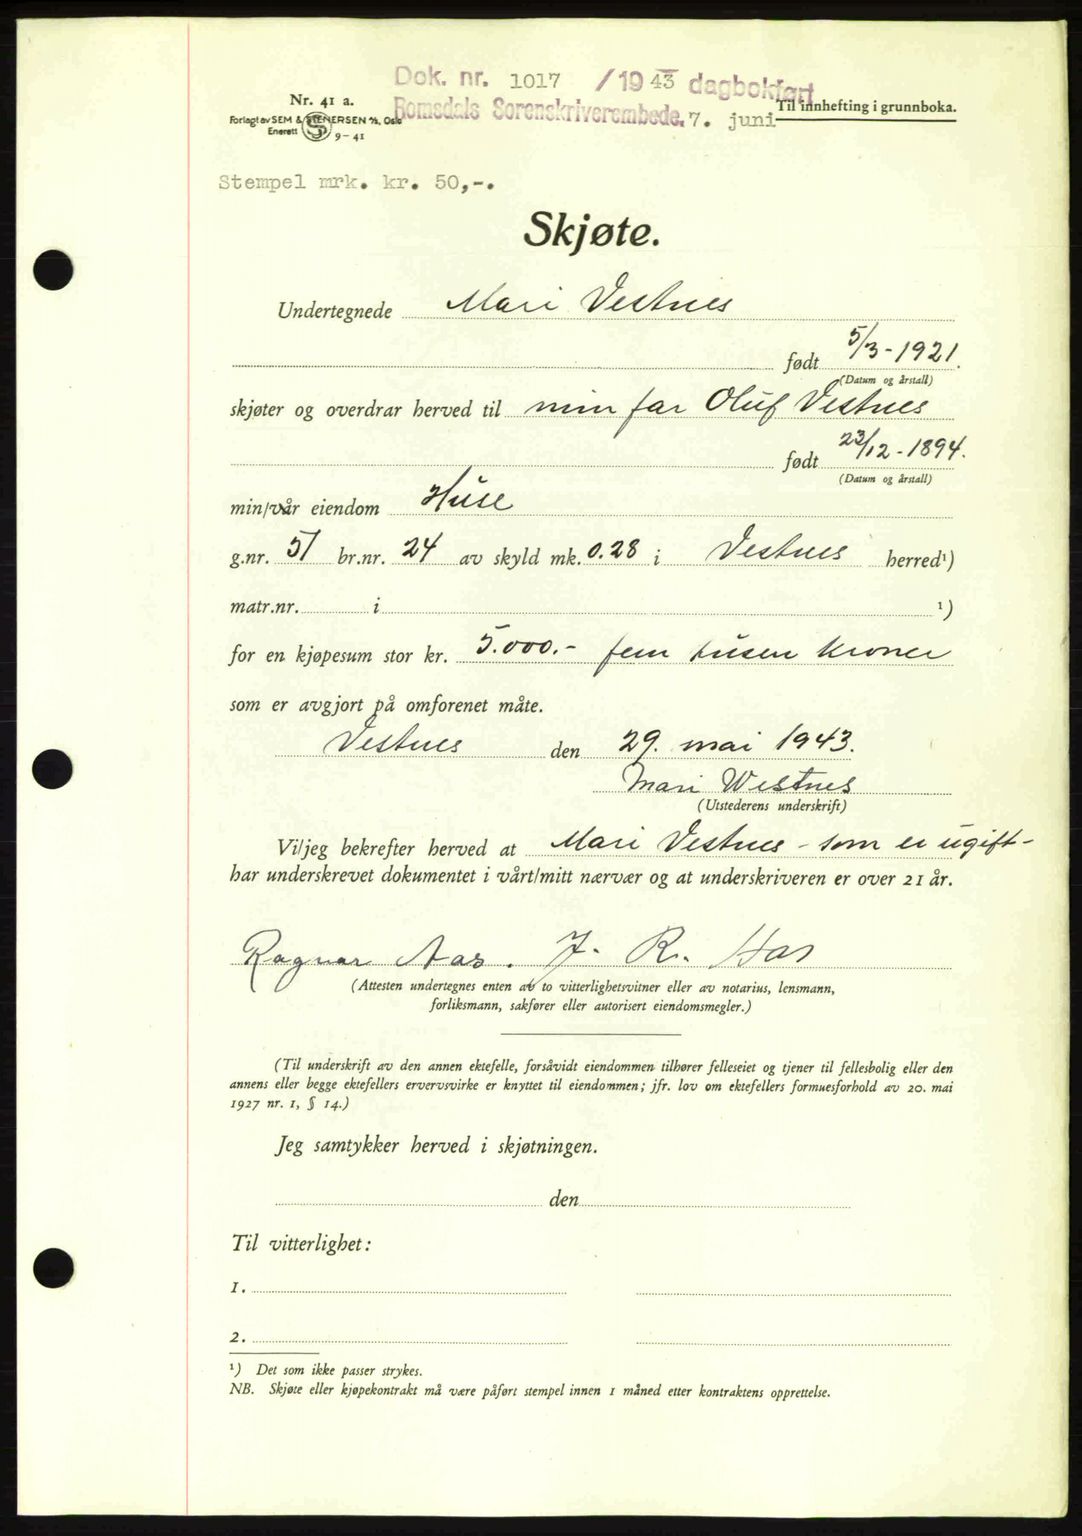 Dok. nr. 1017 /1943 dagbokført
Nr. 41 a.
Romsdals Sorenskriverembede. 7. juni
Til innhefting i grunnboka.
Forlagt av SEM & STENERSEN A/S, Oslo
Enerett 9-41
Stempel mrk. kr. 50,-.
Skjøte.
Undertegnede Mari Vestnes
født 5/3-1921.
(Datum og årstall)
skjøter og overdrar herved til min far Oluf Vestnes
født 23/12-1894.
(Datum og årstall)
min/vår eiendom Huse
g.nr. 51 br.nr. 24 av skyld mk. 0.28 i Vestnes herred¹)
matr.nr. i ¹)
for en kjøpesum stor kr. 5.000.- fem tusen kroner
som er avgjort på omforenet måte.
Vestnes den 29. mai 1943.
Mari Westnes
(Utstederens underskrift)
Vi/jeg bekrefter herved at Mari Vestnes - som er ugift -
har underskrevet dokumentet i vårt/mitt nærvær og at underskriveren er over 21 år.
Ragnar Aas. J. R. Has
(Attesten undertegnes enten av to vitterlighetsvitner eller av notarius, lensmann,
forliksmann, sakfører eller autorisert eiendomsmegler.)
(Til underskrift av den annen ektefelle, forsåvidt eiendommen tilhører felleseiet og tjener til fellesbolig eller den
annens eller begge ektefellers ervervsvirke er knyttet til eiendommen; jfr. lov om ektefellers formuesforhold av 20. mai
1927 nr. 1, § 14.)
Jeg samtykker herved i skjøtningen.
den
Til vitterlighet:
1.
2.
¹) Det som ikke passer strykes.
NB. Skjøte eller kjøpekontrakt må være påført stempel innen 1 måned etter kontraktens opprettelse.